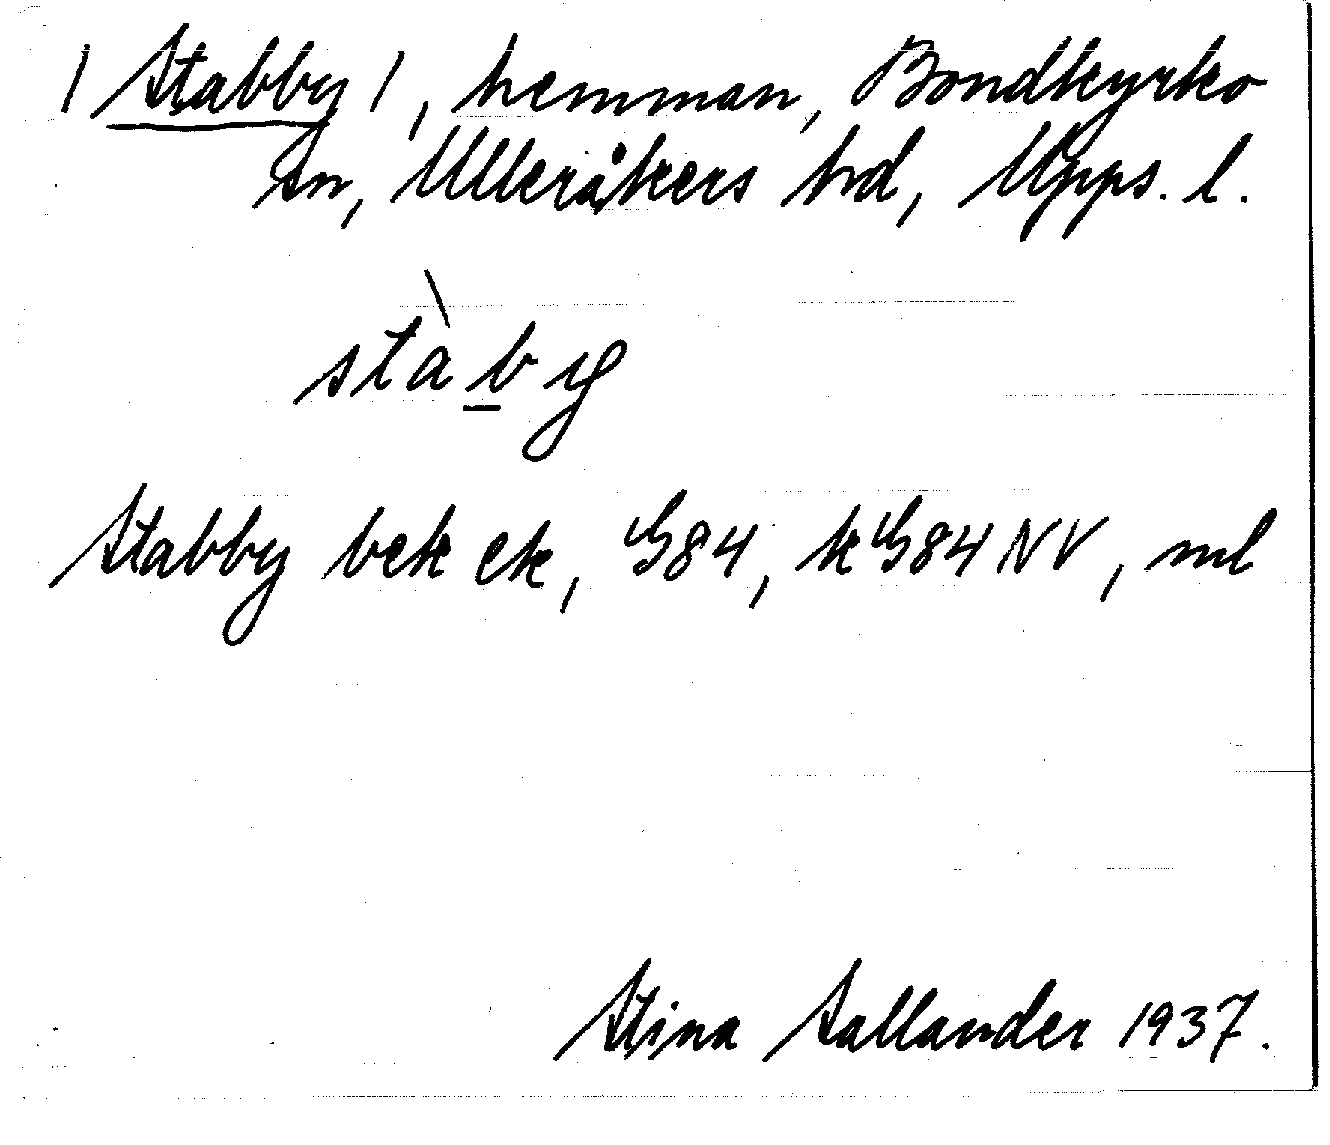 /Stabby/, hemman, Bondkyrko
sn, Ulleråkers hd, Upps. l.
stàb̲y
Stabby bek ek, G84, kG84NV, ml
Stina Sallander 1937.